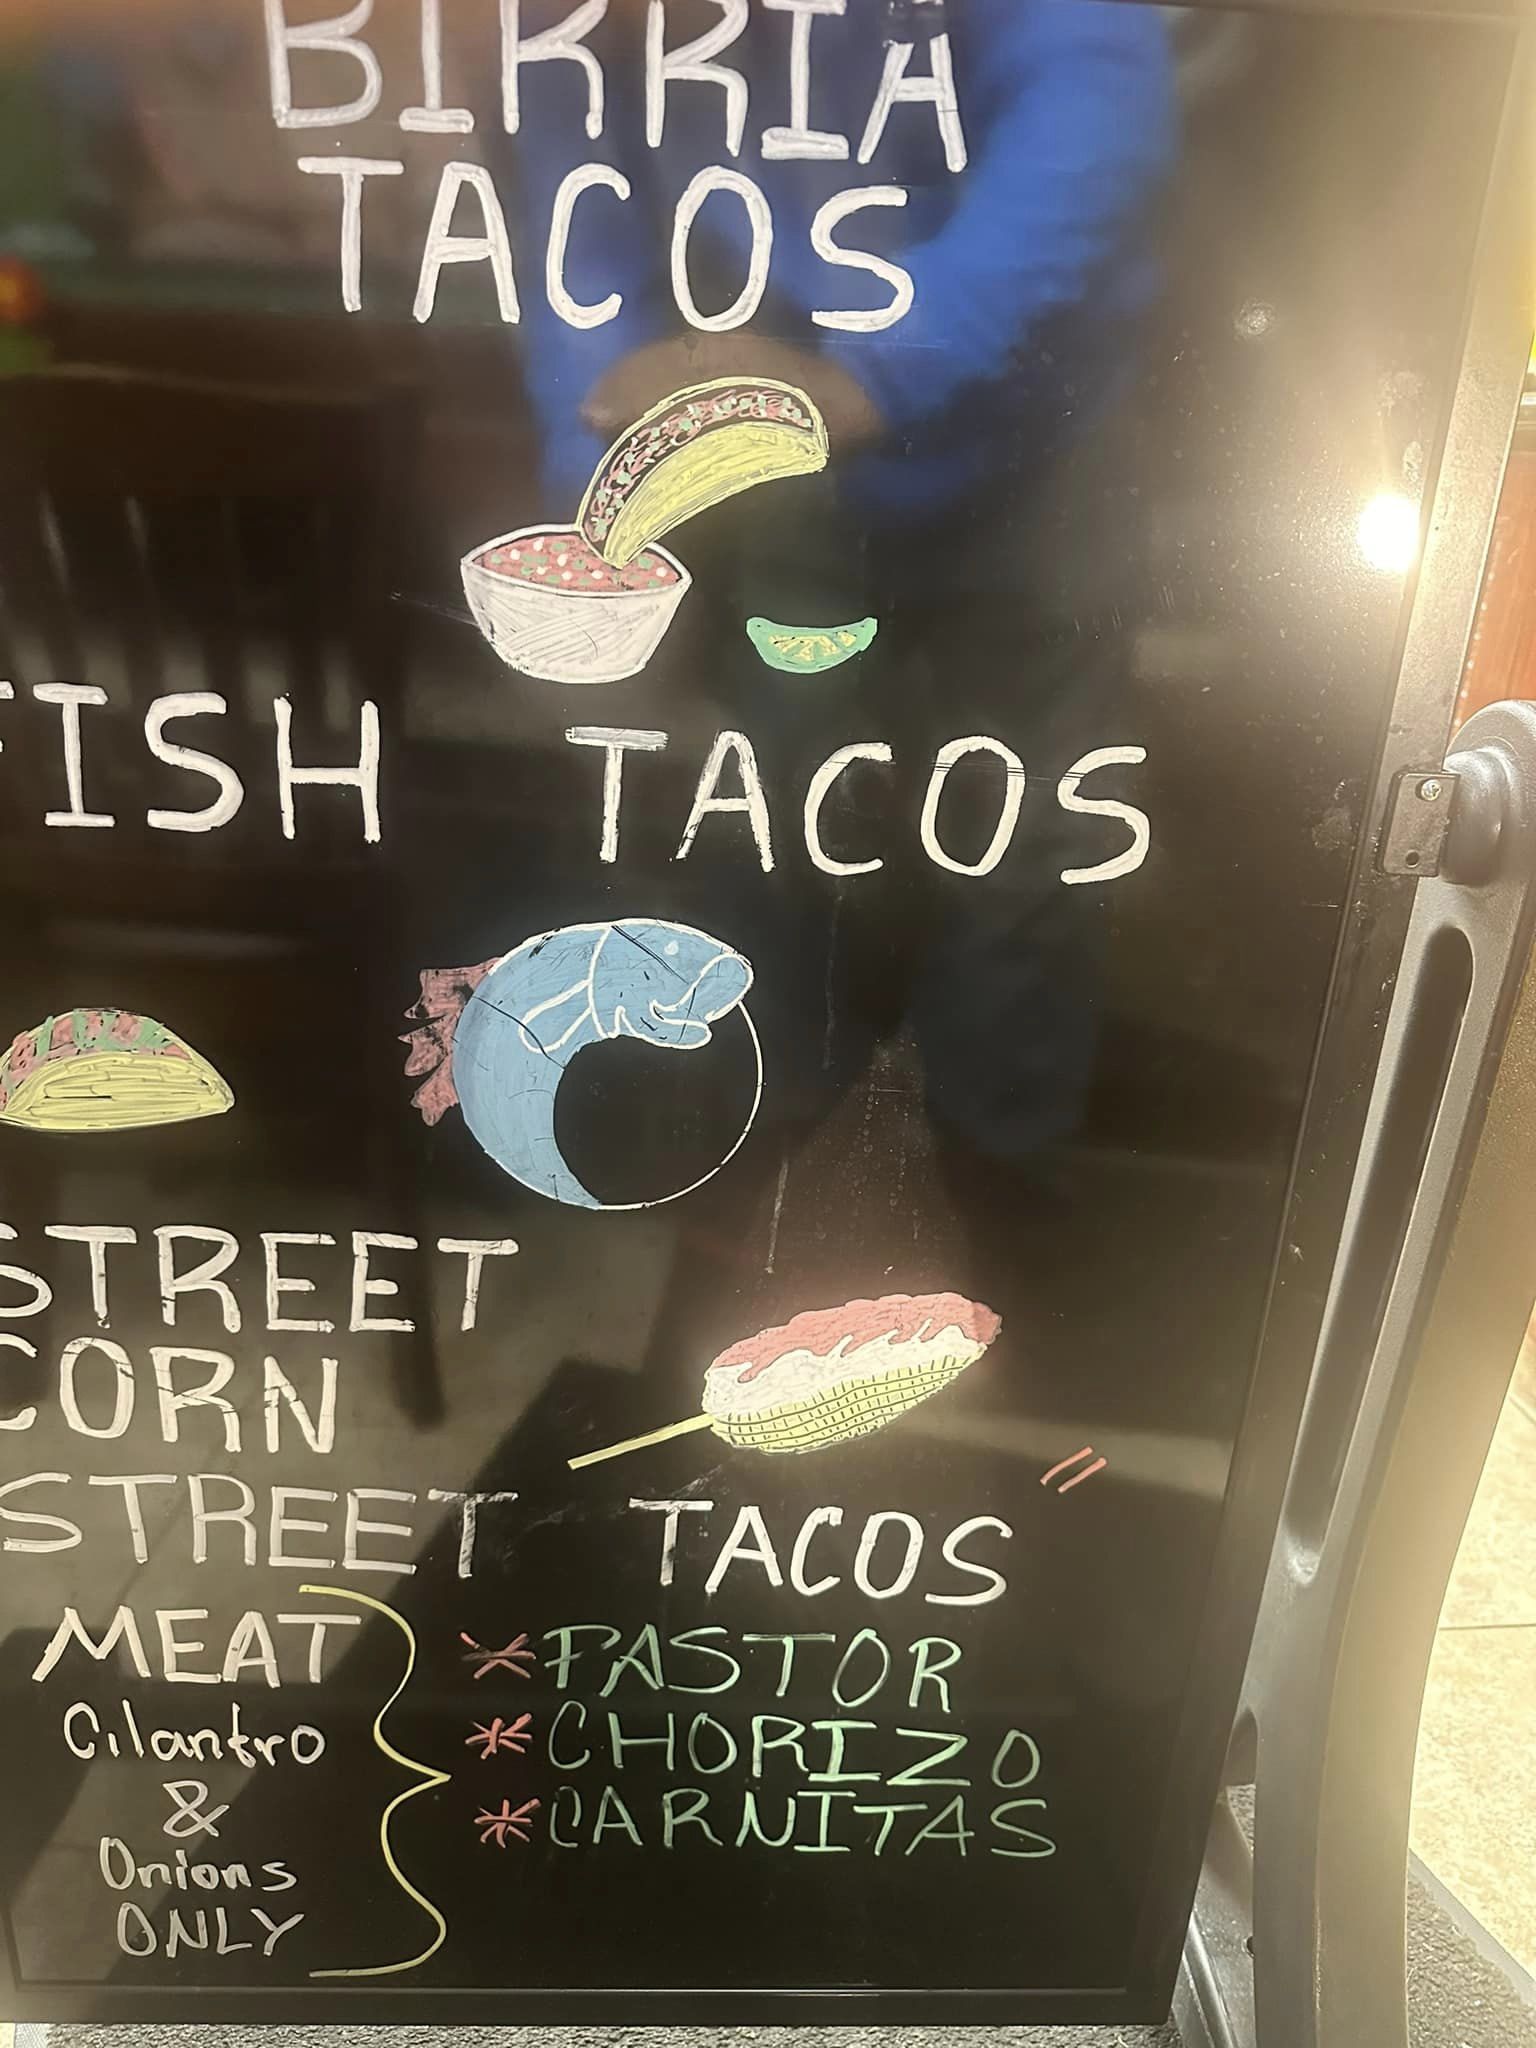 BIRRIA
TACOS
FISH TACOS
STREET
CORN
STREET TACOS
MEAT
Cilantro
&
Onions
ONLY
* PASTOR
* CHORIZO
* CARNITAS